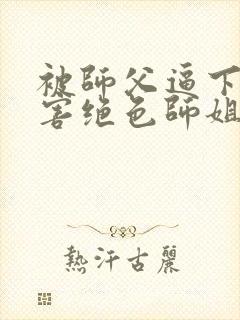 被師父逼下
害绝色師姐
熱汗古麗